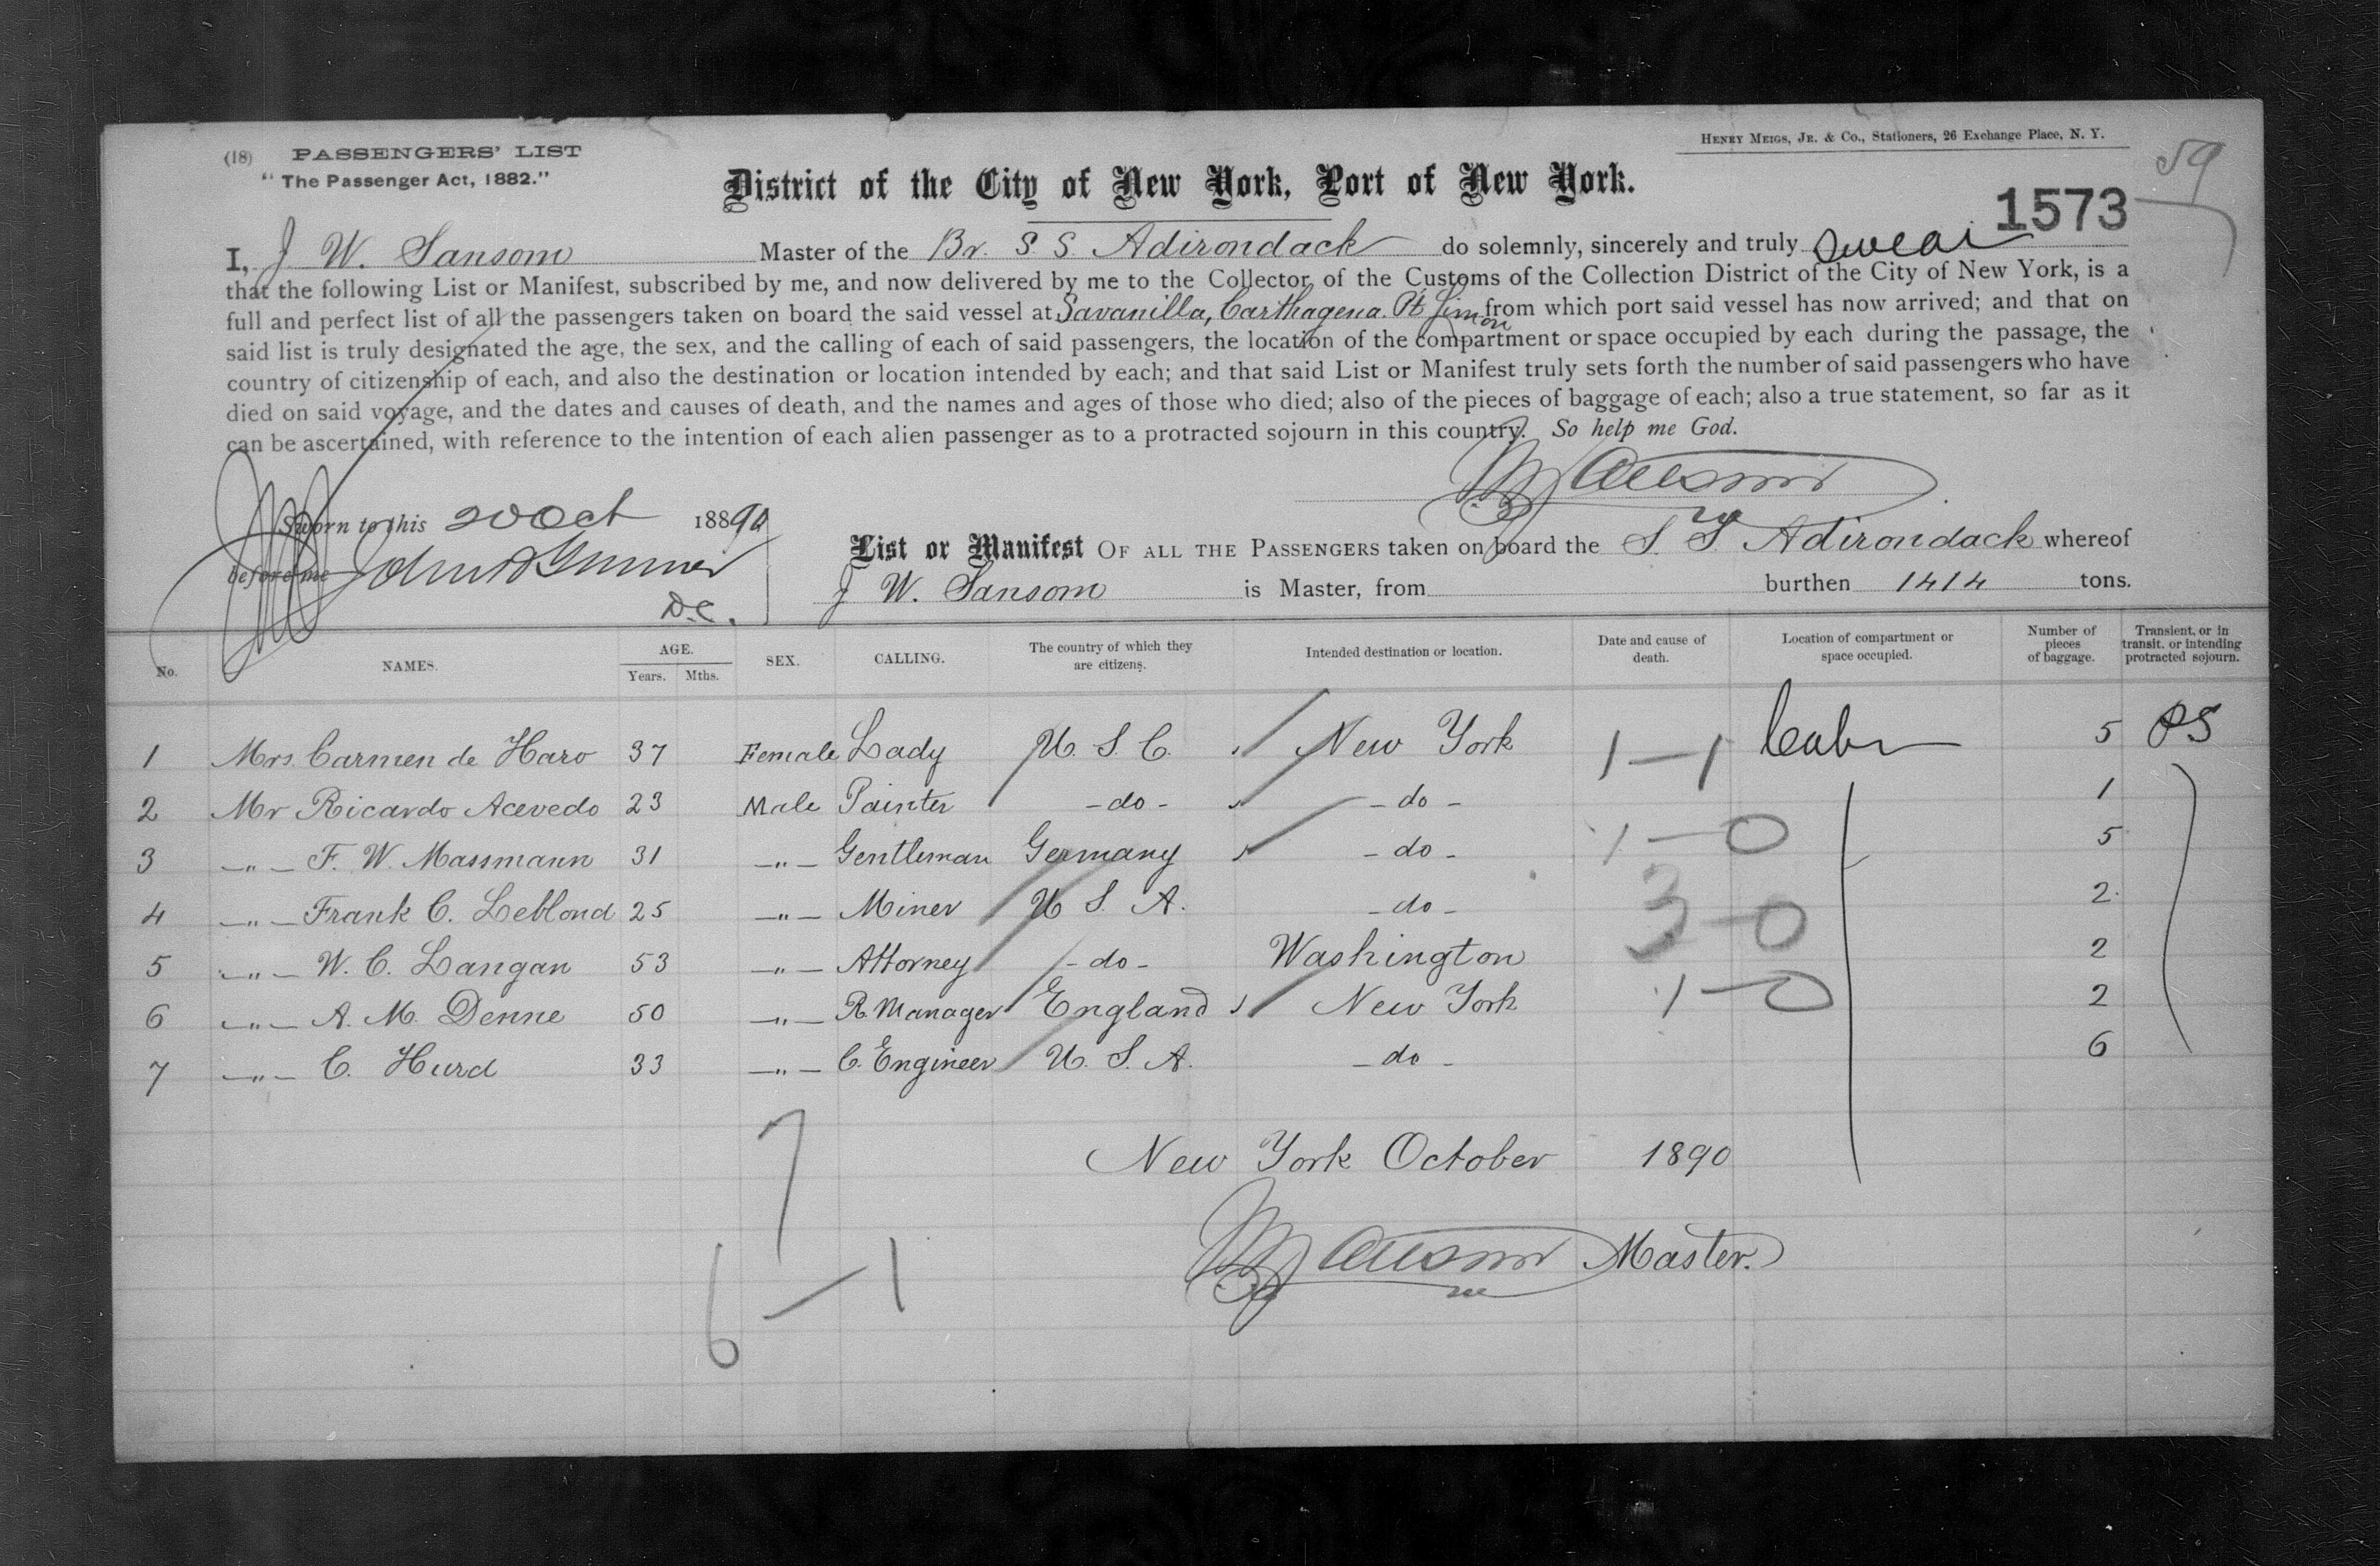 HENRY MEIGS, JR. & CO., Stationers, 26 Exchange Place, N. Y.
(18) PASSENGERS' LIST
"The Passenger Act, 1882."
59
District of the City of New York, Port of New York.
1573
I, J W. Sansom Master of the Br. S S. Adirondack do solemnly, sincerely and truly swear
that the following List or Manifest, subscribed by me, and now delivered by me to the Collector of the Customs of the Collection District of the City of New York, is a
full and perfect list of all the passengers taken on board the said vessel at Savanilla, Carthagena. Pt Limon from which port said vessel has now arrived; and that on
said list is truly designated the age, the sex, and the calling of each of said passengers, the location of the compartment or space occupied by each during the passage, the
country of citizenship of each, and also the destination or location intended by each; and that said List or Manifest truly sets forth the number of said passengers who have
died on said voyage, and the dates and causes of death, and the names and ages of those who died; also of the pieces of baggage of each; also a true statement, so far as it
can be ascertained, with reference to the intention of each alien passenger as to a protracted sojourn in this country. So help me God.
Sworn to this 20 Oct 18890
before me
D.C.
List or Manifest OF ALL THE PASSENGERS taken on board the S. S. Adirondack whereof
J W. Sansom is Master, from burthen 1414 tons.
No. NAMES. AGE. Years. Mths. SEX. CALLING. The country of which they are citizens. Intended destination or location. Date and cause of death. Location of compartment or space occupied. Number of pieces of baggage. Transient, or in transit, or intending protracted sojourn.
1 Mrs. Carmen de Haro 37 Female Lady U. S. C. New York 1-1 5 PS
2 Mr Ricardo Acevedo 23 Male Painter -do- -do- 1
3 -"- F. W. Massmann 31 -"- Gentleman Germany -do- 1-0 5
4 -"- Frank C. Leblond 25 -"- Miner U S. A. -do- 3-0 2
5 -"- W. C. Langan 53 -"- Attorney -do- Washington 2
6 -"- A. M. Denne 50 -"- R. Manager England New York 1-0 2
7 -"- C. Hurd 33 -"- C. Engineer U. S. A. -do- 6
7
New York October 1890
6-1
Master.